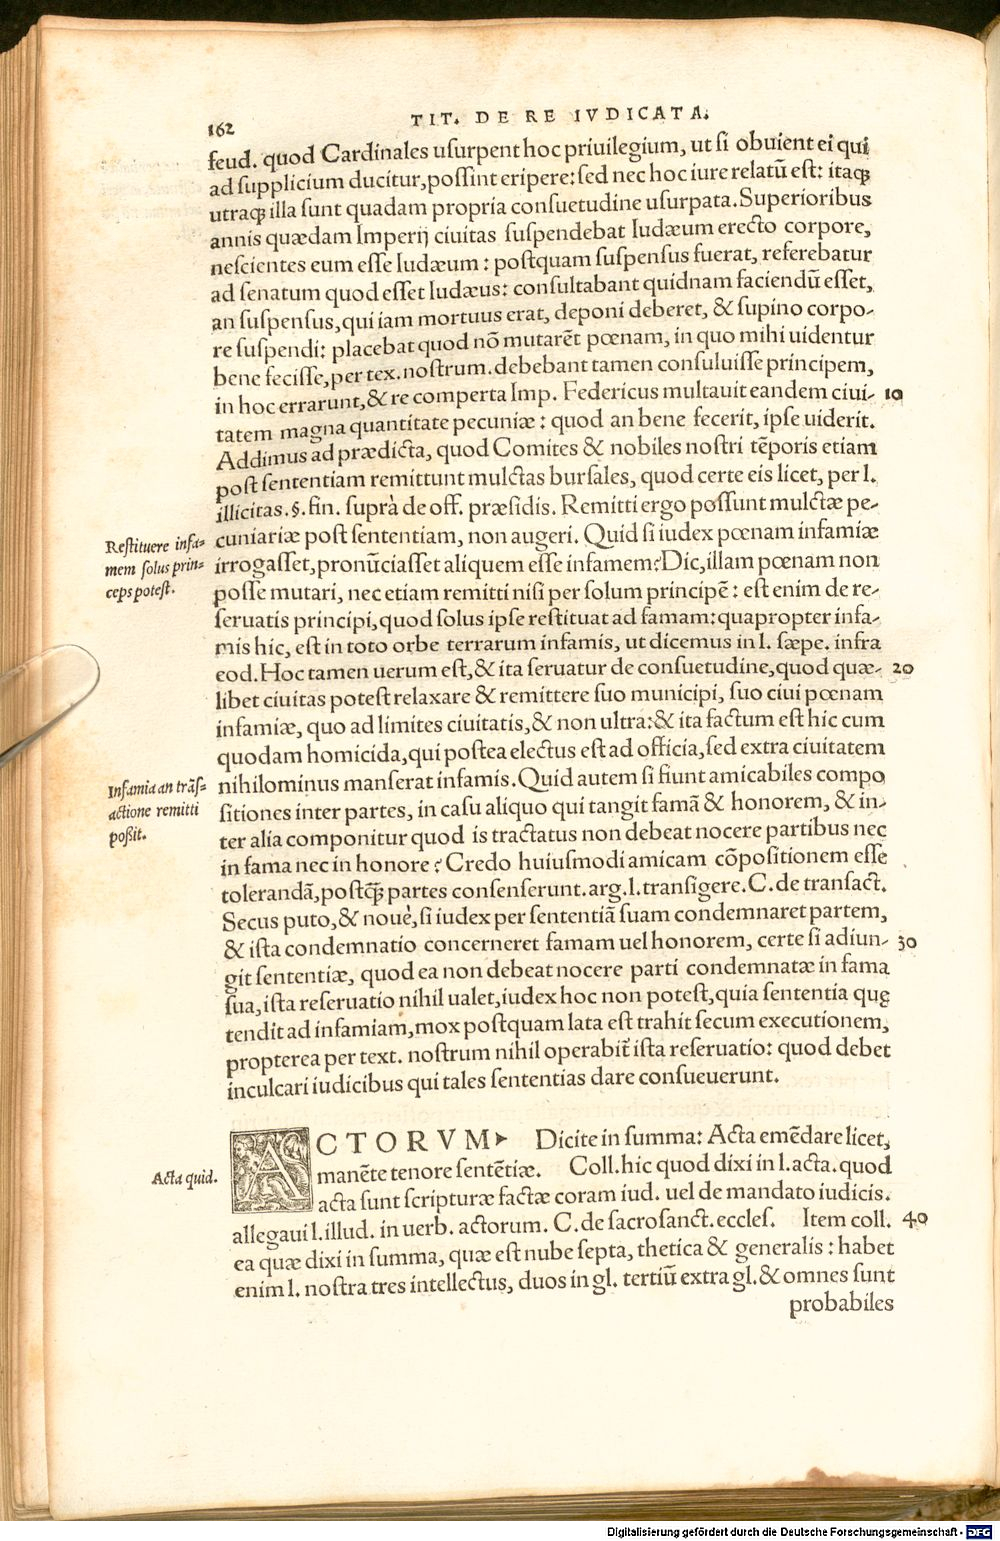 162 TIT. DE RE IVDICATA.
feud. quod Cardinales uſurpent hoc priuilegium, ut ſi obuient ei qui
ad ſupplicium ducitur, poſſint eripere: ſed nec hoc iure relatū eſt: itaqꝫ
utraqꝫ illa ſunt quadam propria conſuetudine uſurpata. Superioribus
annis quædam Imperij ciuitas ſuſpendebat Iudæum erecto corpore,
neſcientes eum eſſe Iudæum: poſtquam ſuſpenſus fuerat, referebatur
ad ſenatum quod eſſet Iudæus: conſultabant quidnam faciendū eſſet,
an ſuſpenſus, qui iam mortuus erat, deponi deberet, & ſupino corpo-
re ſuſpendi: placebat quod nō mutarēt pœnam, in quo mihi uidentur
bene feciſſe, per tex. noſtrum. debebant tamen conſuluiſſe principem,
in hoc errarunt, & re comperta Imp. Federicus multauit eandem ciui- 10
tatem magna quantitate pecuniæ: quod an bene fecerit, ipſe uiderit.
Addimus ad prædicta, quod Comites & nobiles noſtri tēporis etiam
poſt ſententiam remittunt mulctas burſales, quod certe eis licet, per l.
illicitas. §. fin. ſuprà de off. præſidis. Remitti ergo poſſunt mulctæ pe-
cuniariæ poſt ſententiam, non augeri. Quid ſi iudex pœnam infamiæ
Reſtituere infa-
mem ſolus prin-
ceps poteſt.
irrogaſſet, pronūciaſſet aliquem eſſe infamem? Dic, illam pœnam non
poſſe mutari, nec etiam remitti niſi per ſolum principē: eſt enim de re-
ſeruatis principi, quod ſolus ipſe reſtituat ad famam: quapropter infa-
mis hic, eſt in toto orbe terrarum infamis, ut dicemus in l. ſæpe. infra
eod. Hoc tamen uerum eſt, & ita ſeruatur de conſuetudine, quod quæ- 20
libet ciuitas poteſt relaxare & remittere ſuo municipi, ſuo ciui pœnam
infamiæ, quo ad limites ciuitatis, & non ultra: & ita factum eſt hic cum
quodam homicida, qui poſtea electus eſt ad officia, ſed extra ciuitatem
nihilominus manſerat infamis. Quid autem ſi fiunt amicabiles compo
Infamia an trāſ-
actione remitti
poßit.
ſitiones inter partes, in caſu aliquo qui tangit famā & honorem, & in-
ter alia componitur quod is tractatus non debeat nocere partibus nec
in fama nec in honore? Credo huiuſmodi amicam cōpoſitionem eſſe
tolerandā, poſtꝗ̃ partes conſenſerunt. arg. l. tranſigere. C. de tranſact.
Secus puto, & nouè, ſi iudex per ſententiā ſuam condemnaret partem,
& iſta condemnatio concerneret famam uel honorem, certe ſi adiun- 30
git ſententiæ, quod ea non debeat nocere parti condemnatæ in fama
ſua, iſta reſeruatio nihil ualet, iudex hoc non poteſt, quia ſententia quę
tendit ad infamiam, mox poſtquam lata eſt trahit ſecum executionem,
propterea per text. noſtrum nihil operabit̄ iſta reſeruatio: quod debet
inculcari iudicibus qui tales ſententias dare conſueuerunt.
ACTORVM Dicite in ſumma: Acta emēdare licet,
manēte tenore ſentētiæ. Coll. hic quod dixi in l. acta. quod
Acta quid.
acta ſunt ſcripturæ factæ coram iud. uel de mandato iudicis.
allegaui l. illud. in uerb. actorum. C. de ſacroſanct. eccleſ. Item coll. 40
ea quæ dixi in ſumma, quæ eſt nube ſepta, thetica & generalis: habet
enim l. noſtra tres intellectus, duos in gl. tertiū extra gl. & omnes ſunt
probabiles
Digitalisierung gefördert durch die Deutsche Forschungsgemeinschaft - DFG